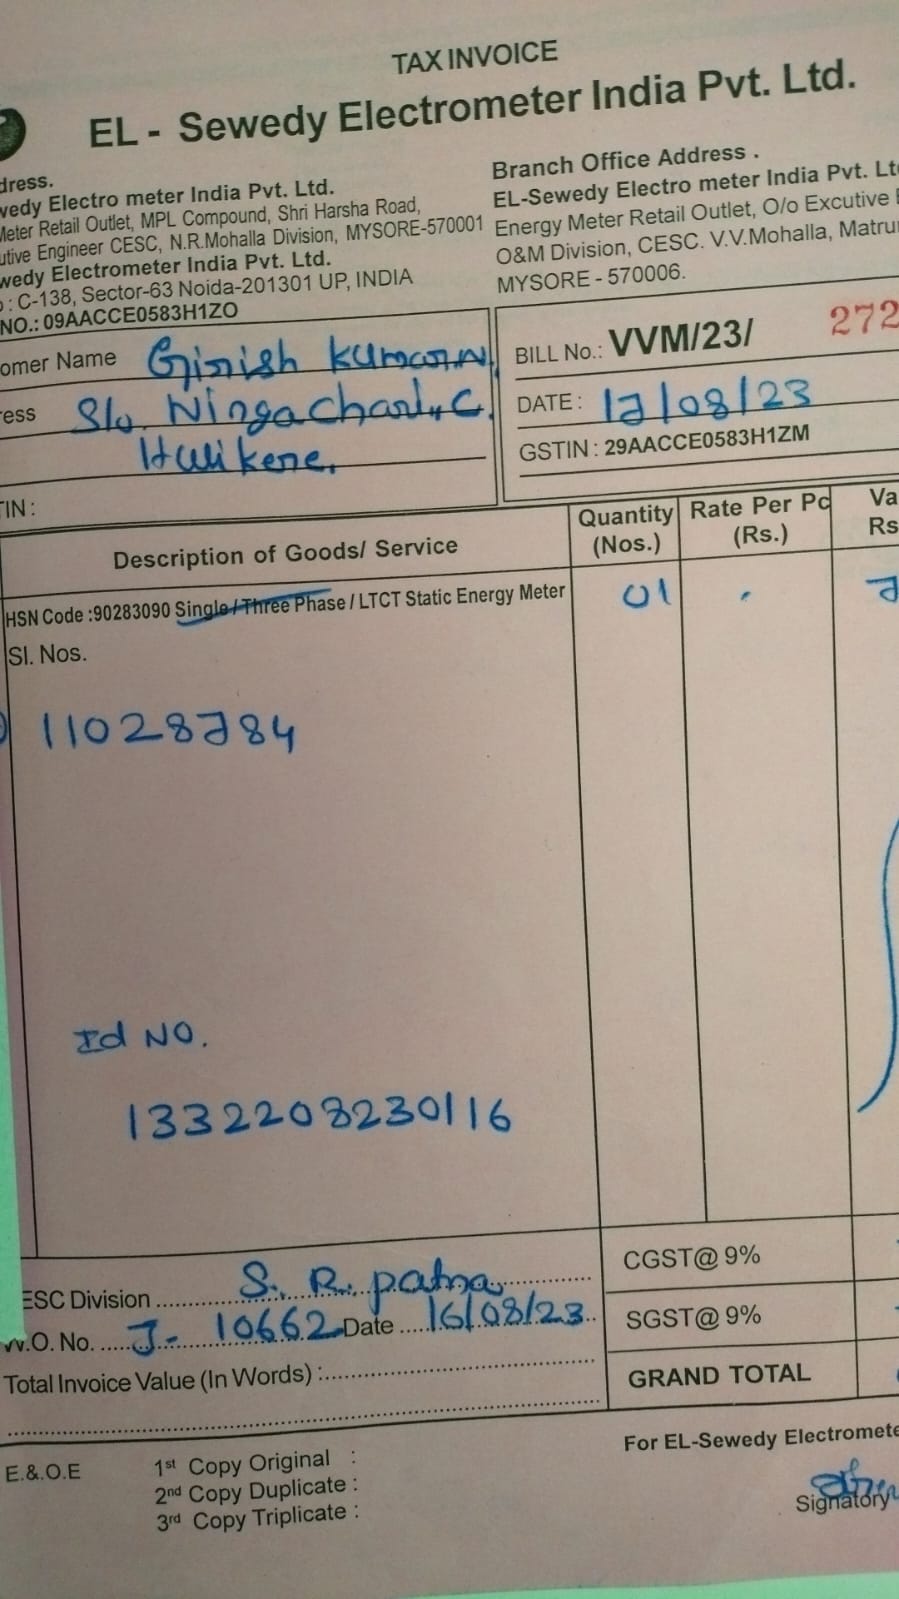 TAX INVOICE
EL - Sewedy Electrometer India Pvt. Ltd.
dress.
wedy Electro meter India Pvt. Ltd.
Meter Retail Outlet, MPL Compound, Shri Harsha Road,
utive Engineer CESC, N.R.Mohalla Division, MYSORE-570001
wedy Electrometer India Pvt. Ltd.
: C-138, Sector-63 Noida-201301 UP, INDIA
NO.: 09AACCE0583H1ZO
Branch Office Address .
EL-Sewedy Electro meter India Pvt. Lt
Energy Meter Retail Outlet, O/o Excutive
O&M Division, CESC. V.V.Mohalla, Matru
MYSORE - 570006.
omer Name Girish Kumar.N
ress S/o. Ningachari.C
Hulikere.
TIN :
BILL No.: VVM/23/ 272
DATE : 17/08/23
GSTIN : 29AACCE0583H1ZM
Description of Goods/ Service Quantity (Nos.) Rate Per Pc (Rs.) Va Rs
HSN Code :90283090 Single / Three Phase / LTCT Static Energy Meter 01
Sl. Nos.
11028784
Id NO.
1332208230116
ESC Division S. R. patna
W.O. No. J- 10662 Date 16/08/23
Total Invoice Value (In Words) :
CGST@ 9%
SGST@ 9%
GRAND TOTAL
E.&.O.E
1st Copy Original :
2nd Copy Duplicate :
3rd Copy Triplicate :
For EL-Sewedy Electromete
Signatory